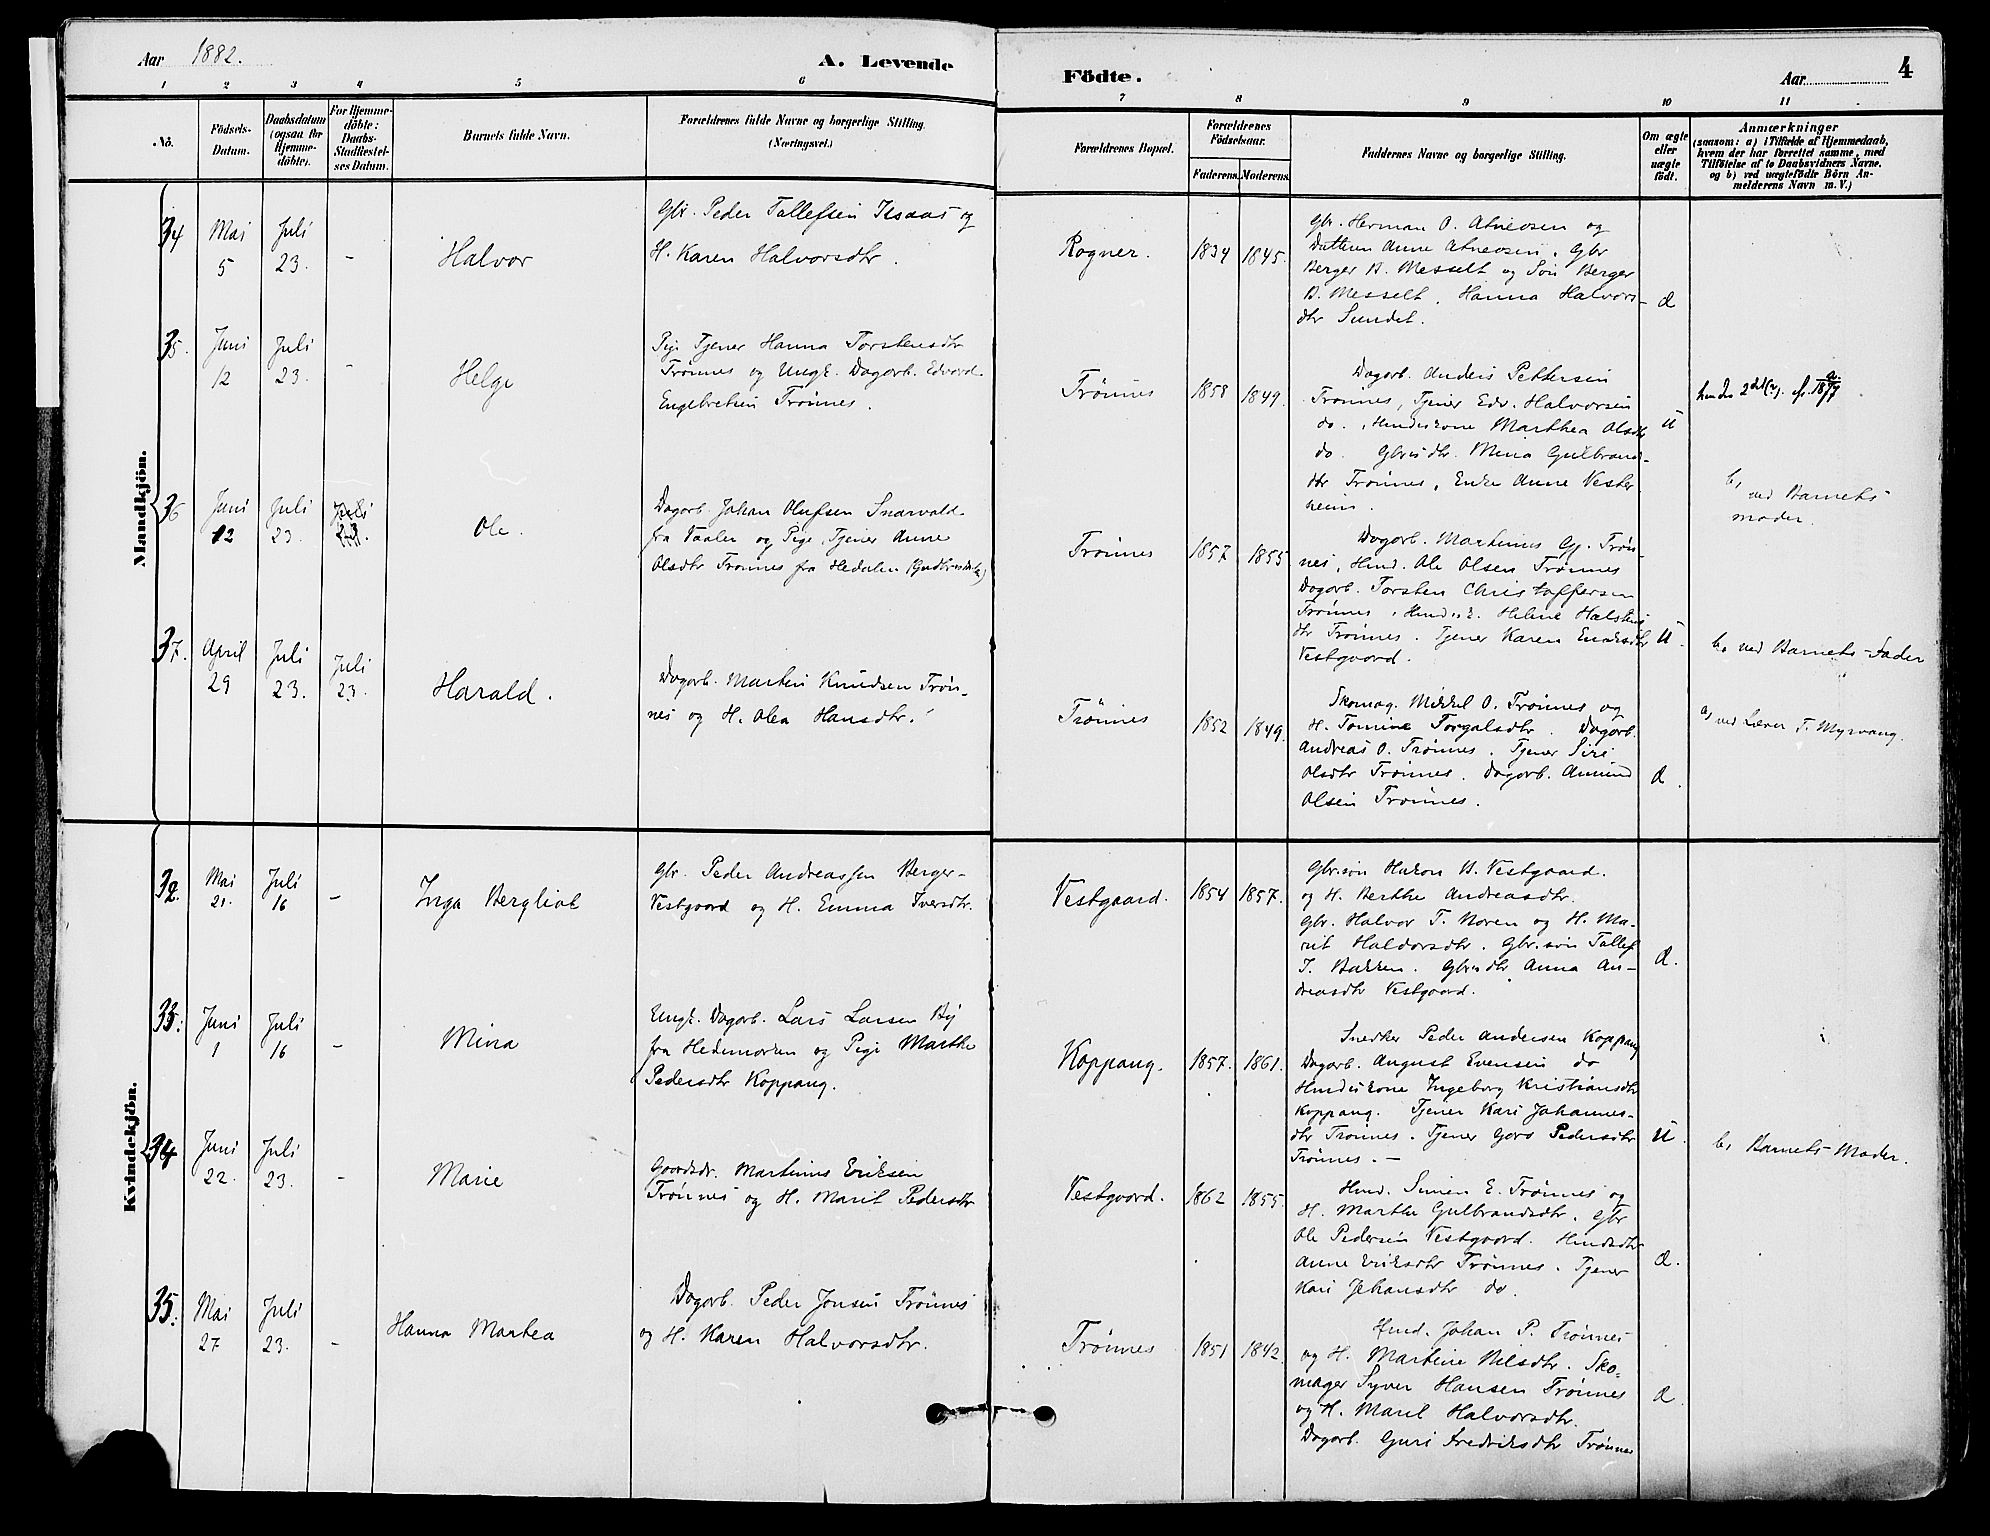 Aar 1882.
A. Levende
Födte.
Aar
4
1 2 3 4 5 6
7 8 9 10 11
No.
Födsels-
Datum.
Daabsdatum
(ogsaa for
Hjemme-
döbte).
For Hjemme-
döbte:
Daabs-
Stadfæstel-
ses Datum.
Barnets fulde Navn.
Forældrenes fulde Navne og borgerlige Stilling.
(Næringsvei.)
Forældrenes Bopæl.
Forældrenes
Födselsaar.
Faderens. Moderens.
Faddernes Navne og borgerlige Stilling.
Om ægte
eller
uægte
födt.
Anmærkninger
(saasom: a) i Tilfælde af Hjemmedaab,
hvem der har forrettet samme, med
Tilföielse af to Daabsvidners Navne.
og b) ved uægtefödte Börn An-
melderens Navn m. V.)
Mandkjön.
34
Mai
5
Juli
23.
-
Halvor
Gbr. Peder Tallefsen og
H. Karen Halvorsdtr.
Rogner.
1834
1845.
Gbr. Herman O. Atneosen og
Datteren Anne Atneosen, Gbr
Berger B. Messelt og Sön Berger
B. Messelt, Hanna Halvors-
dtr Sundet.
æ
35.
Juni
12
Juli
23.
-
Helge
Pige Tjener Hanna Torstensdtr
Trönnes og Ungk. Dagarb. Edvard
Engebretsen Trönnes.
Trönnes
1858
1849.
Dagarb. Anders Pettersen
Trönnes, Tjener Edv. Halvorsen
do., Huuskone Marthea Olsdtr
do. Mina Gulbrands-
dtr Trönnes, Enke Anne Vester-
heim.
u
hendes 2det
b, ved Barnets
moder.
36
Juni
12
Juli
23.
Juli
23.
Ole.
Dagarb. Johan Olufsen Snarvold
fra Vaaler og Pige, Tjener Anne
Olsdtr Trönnes fra Hedalen
Trönnes
1857
1855
Dagarb. Martinus Gj. Trön-
nes, Hmd. Ole Olsen Trönnes
Dagarb. Torsten Christoffersen
Trönnes, Helene Halstens
dtr Trönnes. Tjener Karen
Vestgaard.
U.
b, ved Barnets Fader
37.
April
29
Juli
23.
Juli
23.
Harald.
Dagarb. Martin Knudsen Trön-
nes og H. Olea Hansdtr.
Trönnes
1852
1849.
Skomag. Mikkel O. Trönnes og
H. Tomine Torgalsdtr. Dagarb.
Andreas O. Trönnes. Tjener Siri
Olsdtr Trönnes. Dagarb. Amund
Olsen Trönnes.
æ.
a, ved Lærer T. Myrvang.
Kvindekjön.
32.
Mai
21.
Juli
16
-
Inga Bergliot
Gbr. Peder Andreassen Berger-
Vestgaard og H. Emma Iversdtr.
Vestgaard.
1854
1857.
Gbr.sön Hakon B. Vestgaard.
og H. Berthe Andreasdtr.
Gbr. Halvor T. Noren og H. Ma-
rit Haldorsdtr. Gbr.sön Tallef
T. Bakken. Anna An-
dreasdtr Vestgaard.
æ.
33.
Juni
1
Juli
16
-
Mina
Ungk. Dagarb. Lars Larsen By
fra Hedemarken og Pige Marthe
Pedersdtr Koppang.
Koppang.
1857.
1861.
Snedker Peder Andersen Koppang
Dagarb. August Evensen do
Huuskone Ingeborg Kristiansdtr
Koppang. Tjener Kari Johannes-
dtr Trönnes. Tjener Goro Pedersdtr
Trönnes. —
U.
b, Barnets Moder.
34
Juni
22.
Juli
23.
-
Marie
Gaardbr. Martinus Eriksen
Trönnes og H. Marit Pedersdtr
Vestgaard.
1862
1855.
Hmd. Simen E. Trönnes og
H. Marthe Gulbrandsdtr. Gbr
Ole Pedersen Vestgaard. Hmdsdtr
Anne Eriksdtr Trönnes. Tjener
Kari Johansdtr do.
æ.
35.
Mai
27
Juli
23.
-
Hanna Marthea
Dagarb. Peder Jonsen Trönnes
og H. Karen Halvorsdtr.
Trönnes
1851
1842.
Hmd. Johan P. Trönnes
og H. Martine Nilsdtr. Sko-
mager Syver Hansen Trönnes
og H. Maril Halvorsdtr.
Dagarb. Guri Fredriksdtr Trönnes
æ